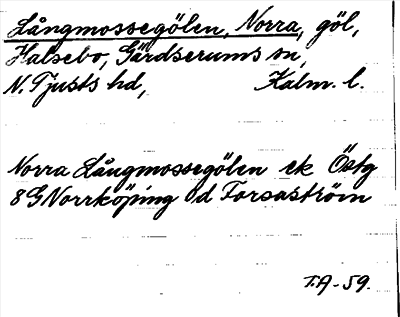 Långmossegölen, Norra, göl,
Halsebo, Gärdserums sn,
N. Tjusts hd, Kalm. l.
Norra Långmossegölen ek Östg
8G Norrköping 0d Forsaström
T.A-59.